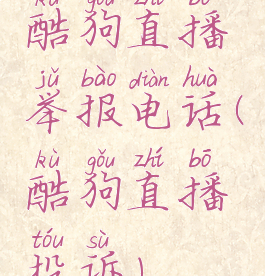 kù gǒu zhí bō
酷狗直播
jǔ bào diàn huà
举报电话(
kù gǒu zhí bō
酷狗直播
tóu sù
投诉)